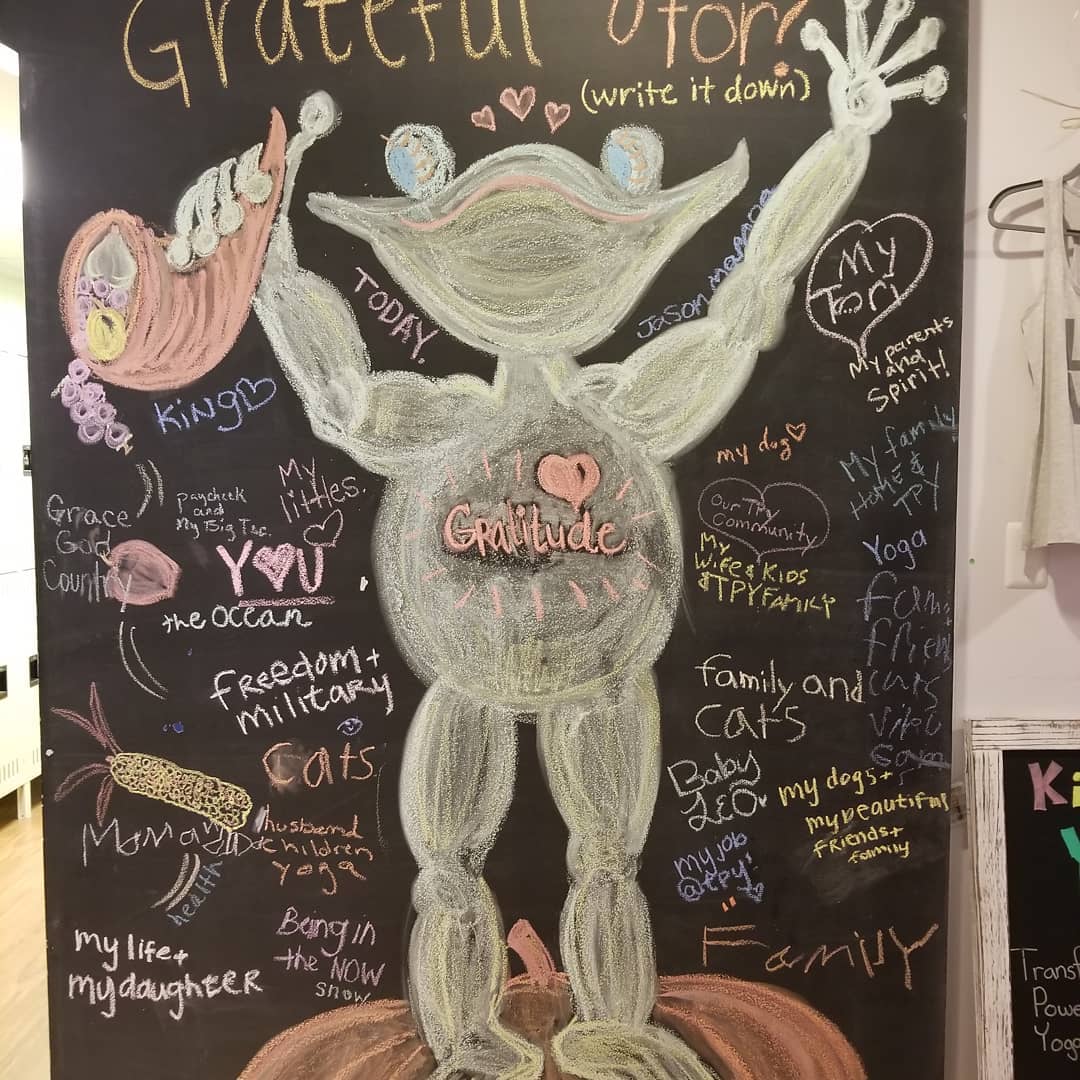 Grateful for?
(write it down)
TODAY.
Jason
My
Tori
My parents
and
Spirit!
KiNG
My
littles.
my dog
My family
HOME &
TPY
Paycheck
and
My Big Tac.
Gratitude
Our TPY
Community
Grace
God
Country
YOU
My
Wife & Kids
& TPY FAMILY
Yoga
the OCEAN
FREEDOM +
military
family and
CATS
cars
Cats
Baby
LEO
my dogs +
my beautiful
FRiENDS +
family
husband
children
yoga
my job
@TPY!
health
Being in
the NOW
snow
my life +
my daughter
FamilY
Ki
Transf
Powe
Yoga